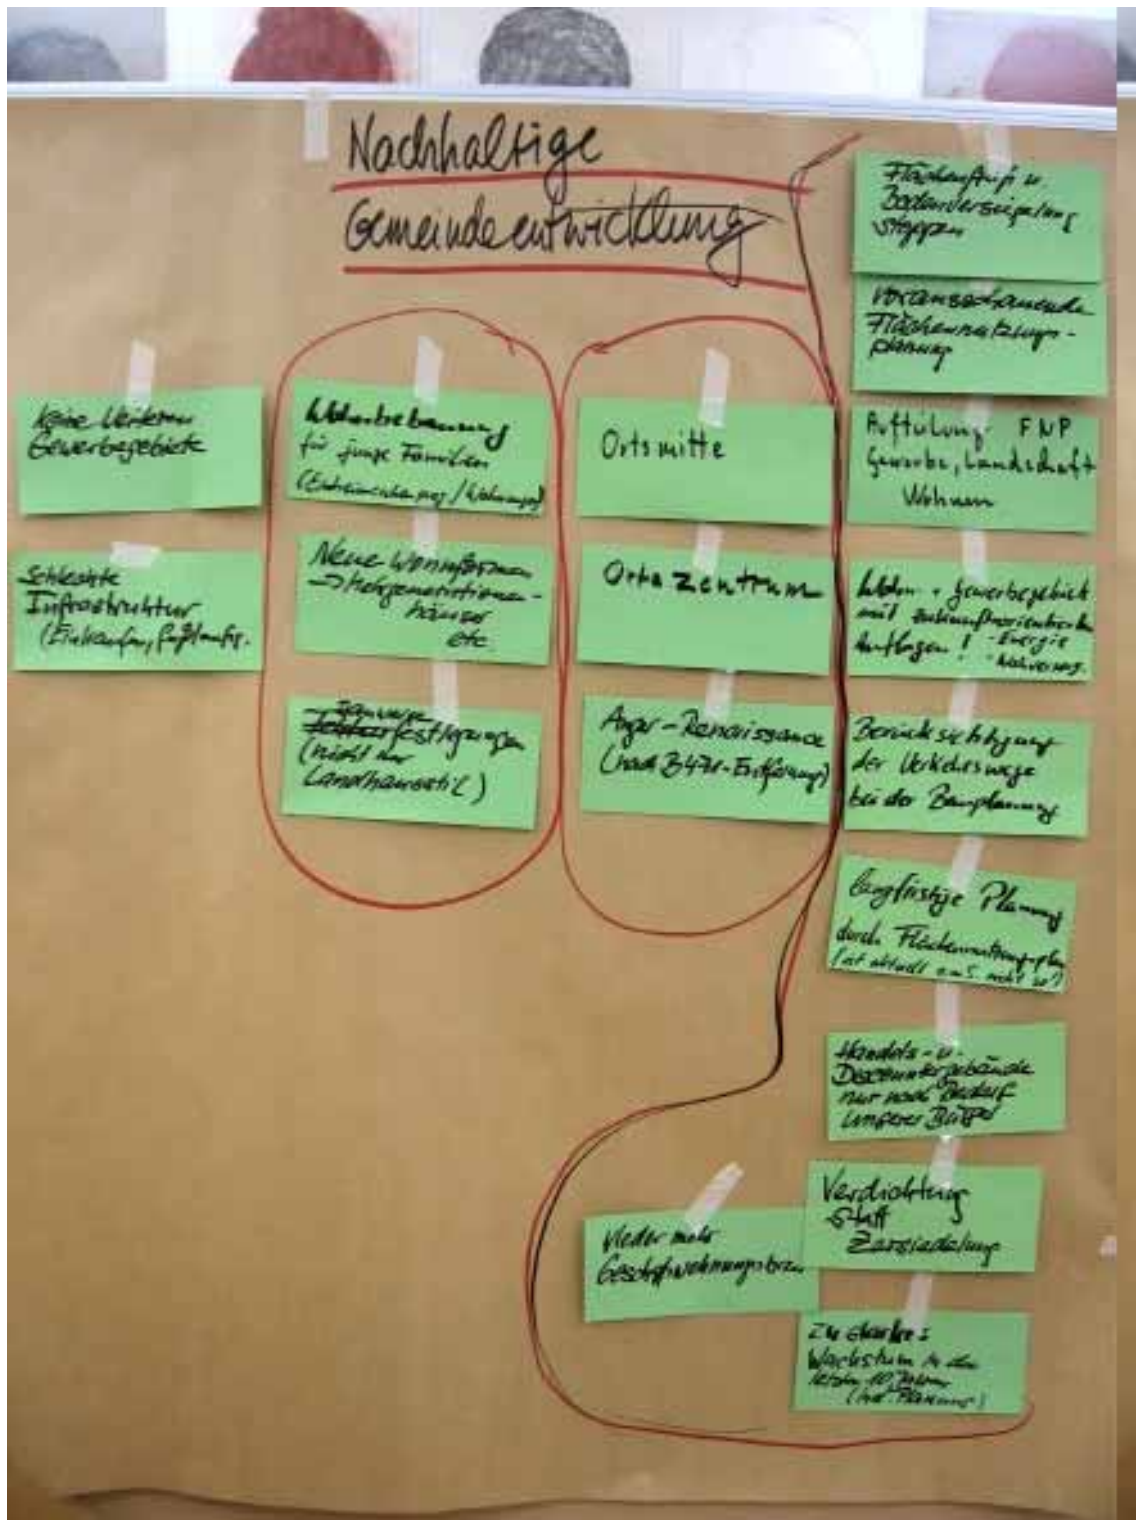 Nachhaltige
Gemeindeentwicklung
Keine weiteren
Gewerbegebiete
Schlechte
Infrastruktur
(Einkaufen, fußläufig.
Wohnbebauung
für junge Familien
(Einheimischen / Wohnungen)
Neue Wohnformen
→ Mehrgenerationen-
häuser
etc.
festlegungen
(nicht nur
Landhausstil)
Ortsmitte
Ortszentrum
Anger-Renaissance
(nach B471-Entfernung)
Flächenfraß u.
Bodenversiegelung
stoppen
Vorausschauende
Flächennutzungs-
planung
Aufteilung FNP
Gewerbe, Landschaft
Wohnen
Wohn- + Gewerbegebiete
mit zukunftsorientierten
Auflagen! - Energie
Berücksichtigung
der Verkehrswege
bei der Bauplanung
langfristige Planung
durch Flächennutzungsplan
(ist aktuell nicht so!)
Handels- u.
Discountergebäude
nur nach Bedarf
unserer Bürger
Verdichtung
statt
Zersiedelung
Wieder mehr
Zu starkes
Wachstum in den
letzten 10 Jahren
(incl. Planung)